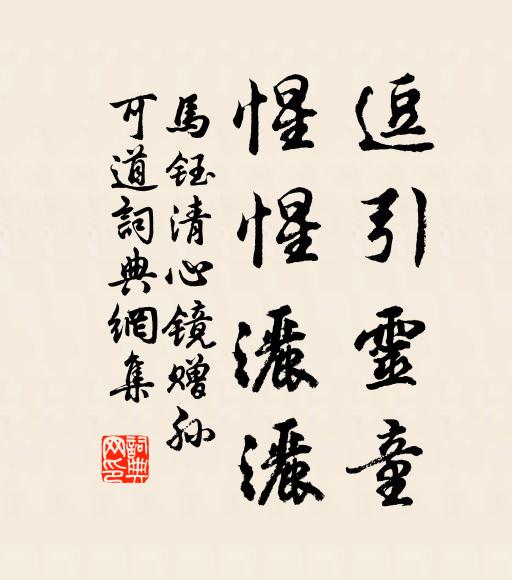 逗引靈童
惺惺灑灑
馬鈺清心镜赠孙
可道詞典網集
詞典网印